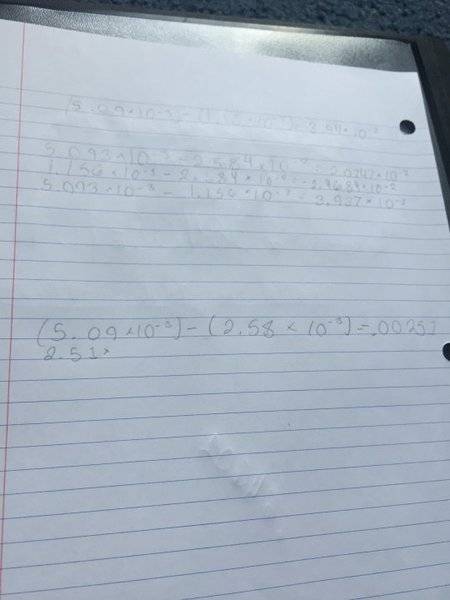 (5.09×10⁻³) - (1.16×10⁻³) = 3.94×10⁻³
5.093×10⁻³ - 2.584×10⁻² =
1.156×10⁻³ - 2.584×10⁻² = -2.4684×10⁻²
5.093×10⁻³ - 1.156×10⁻³ = 3.937×10⁻³
(5.09×10⁻³) - (2.58×10⁻³) = .00251
2.51×